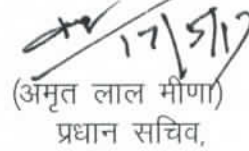 17/5/17
(अमृत लाल मीणा)
प्रधान सचिव,